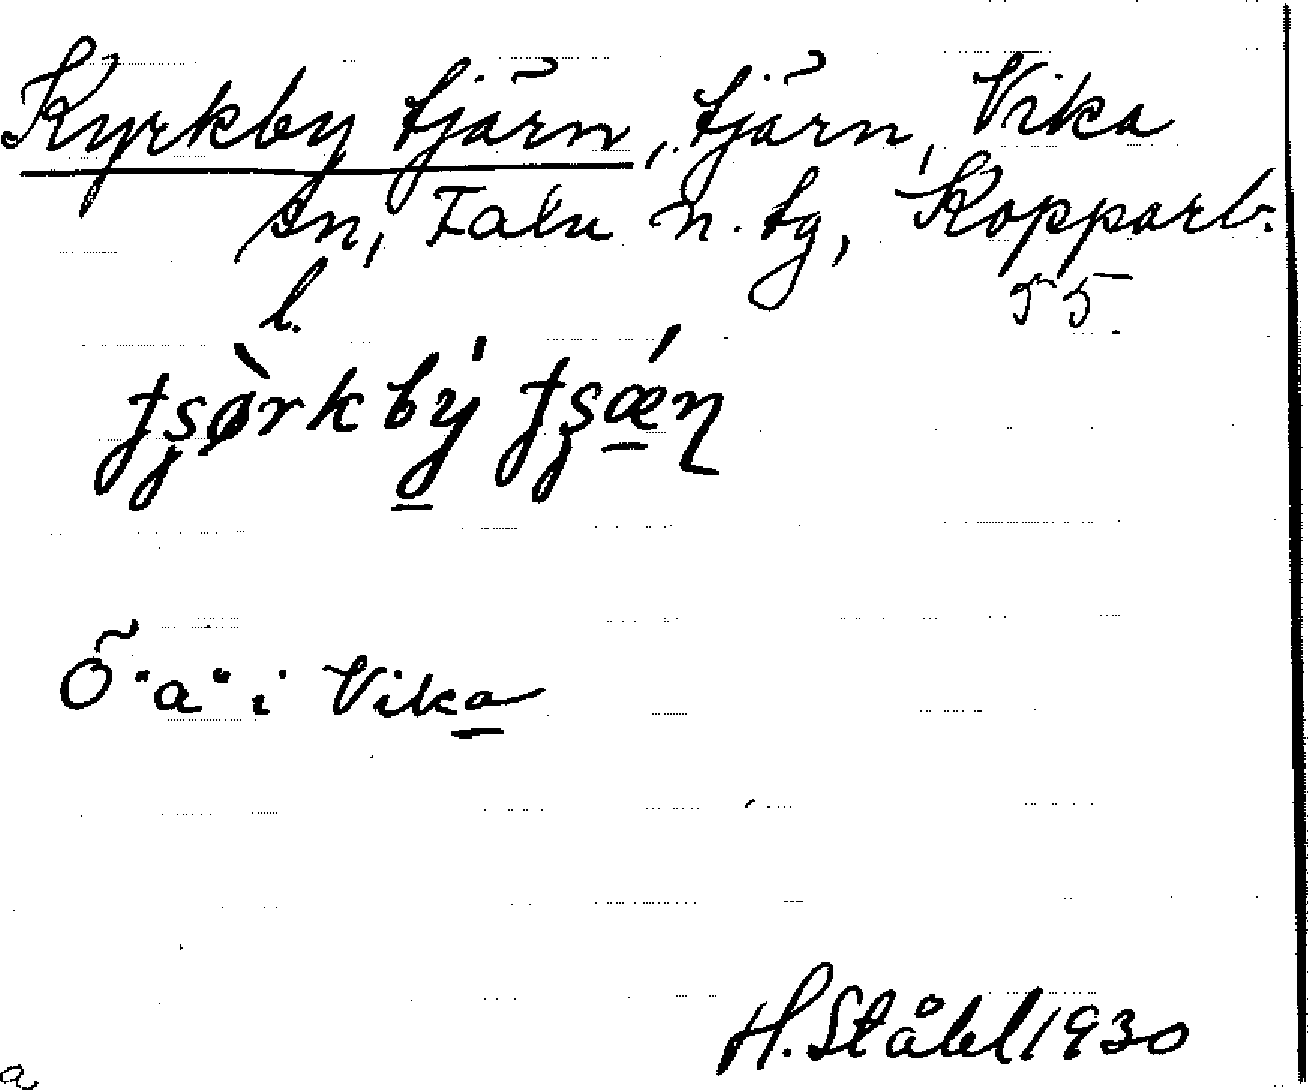 Kyrkby tjärn, tjärn, Vika
sn, Falu n. tg, Kopparb.
l. 55
Ö "a" i Vika
H. Ståhl 1930
a